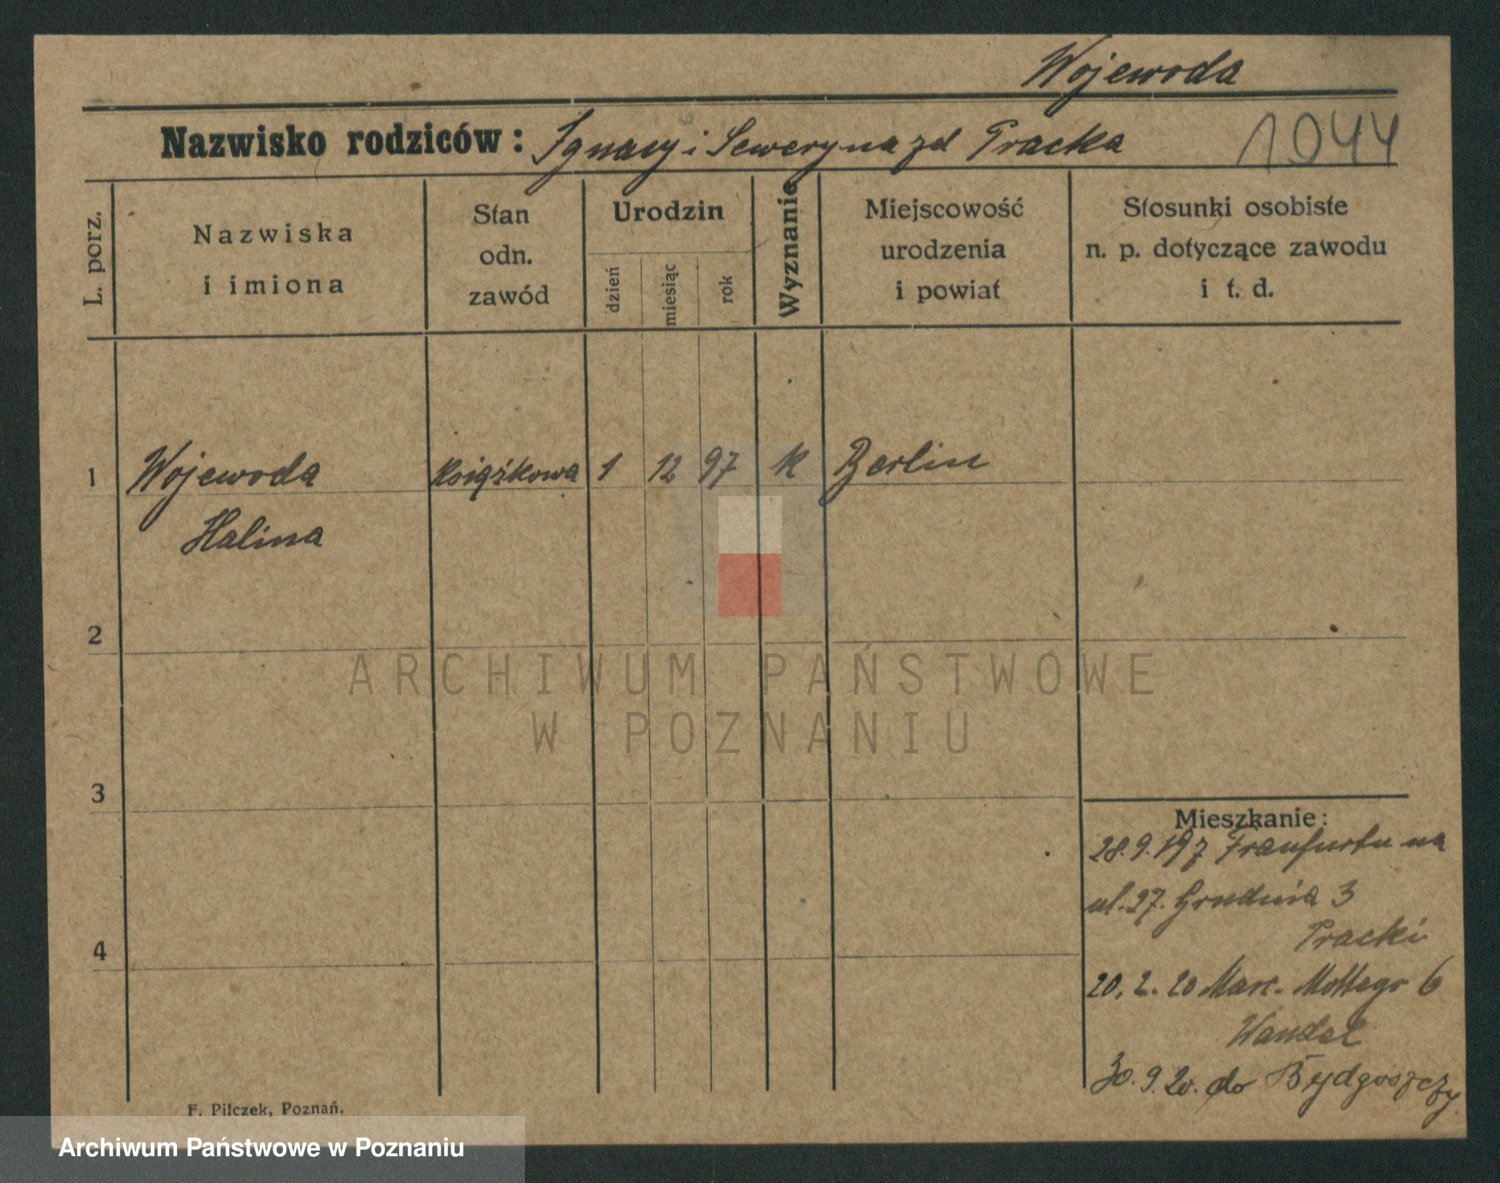 Wojewoda
Nazwisko rodziców: Ignacy i Seweryna zd Pracka 1044
L. porz.
Nazwiska
i imiona
Stan
odn.
zawód
Urodzin
dzień
miesiąc
rok
Wyznanie
Miejscowość
urodzenia
i powiat
Stosunki osobiste
n. p. dotyczące zawodu
i t. d.
1 Wojewoda książkowa 1 12 97 k Berlin
Halina
2
ARCHIWUM PAŃSTWOWE
W POZNANIU
3
Mieszkanie:
28.9.197 Franfurtu na
ul. 27. Grudnia 3
Pracki
4
20.2.20 Marc. Mottego 6
Wandel
30.9.20. do Bydgoszczy
F. Pilczek, Poznań.
Archiwum Państwowe w Poznaniu